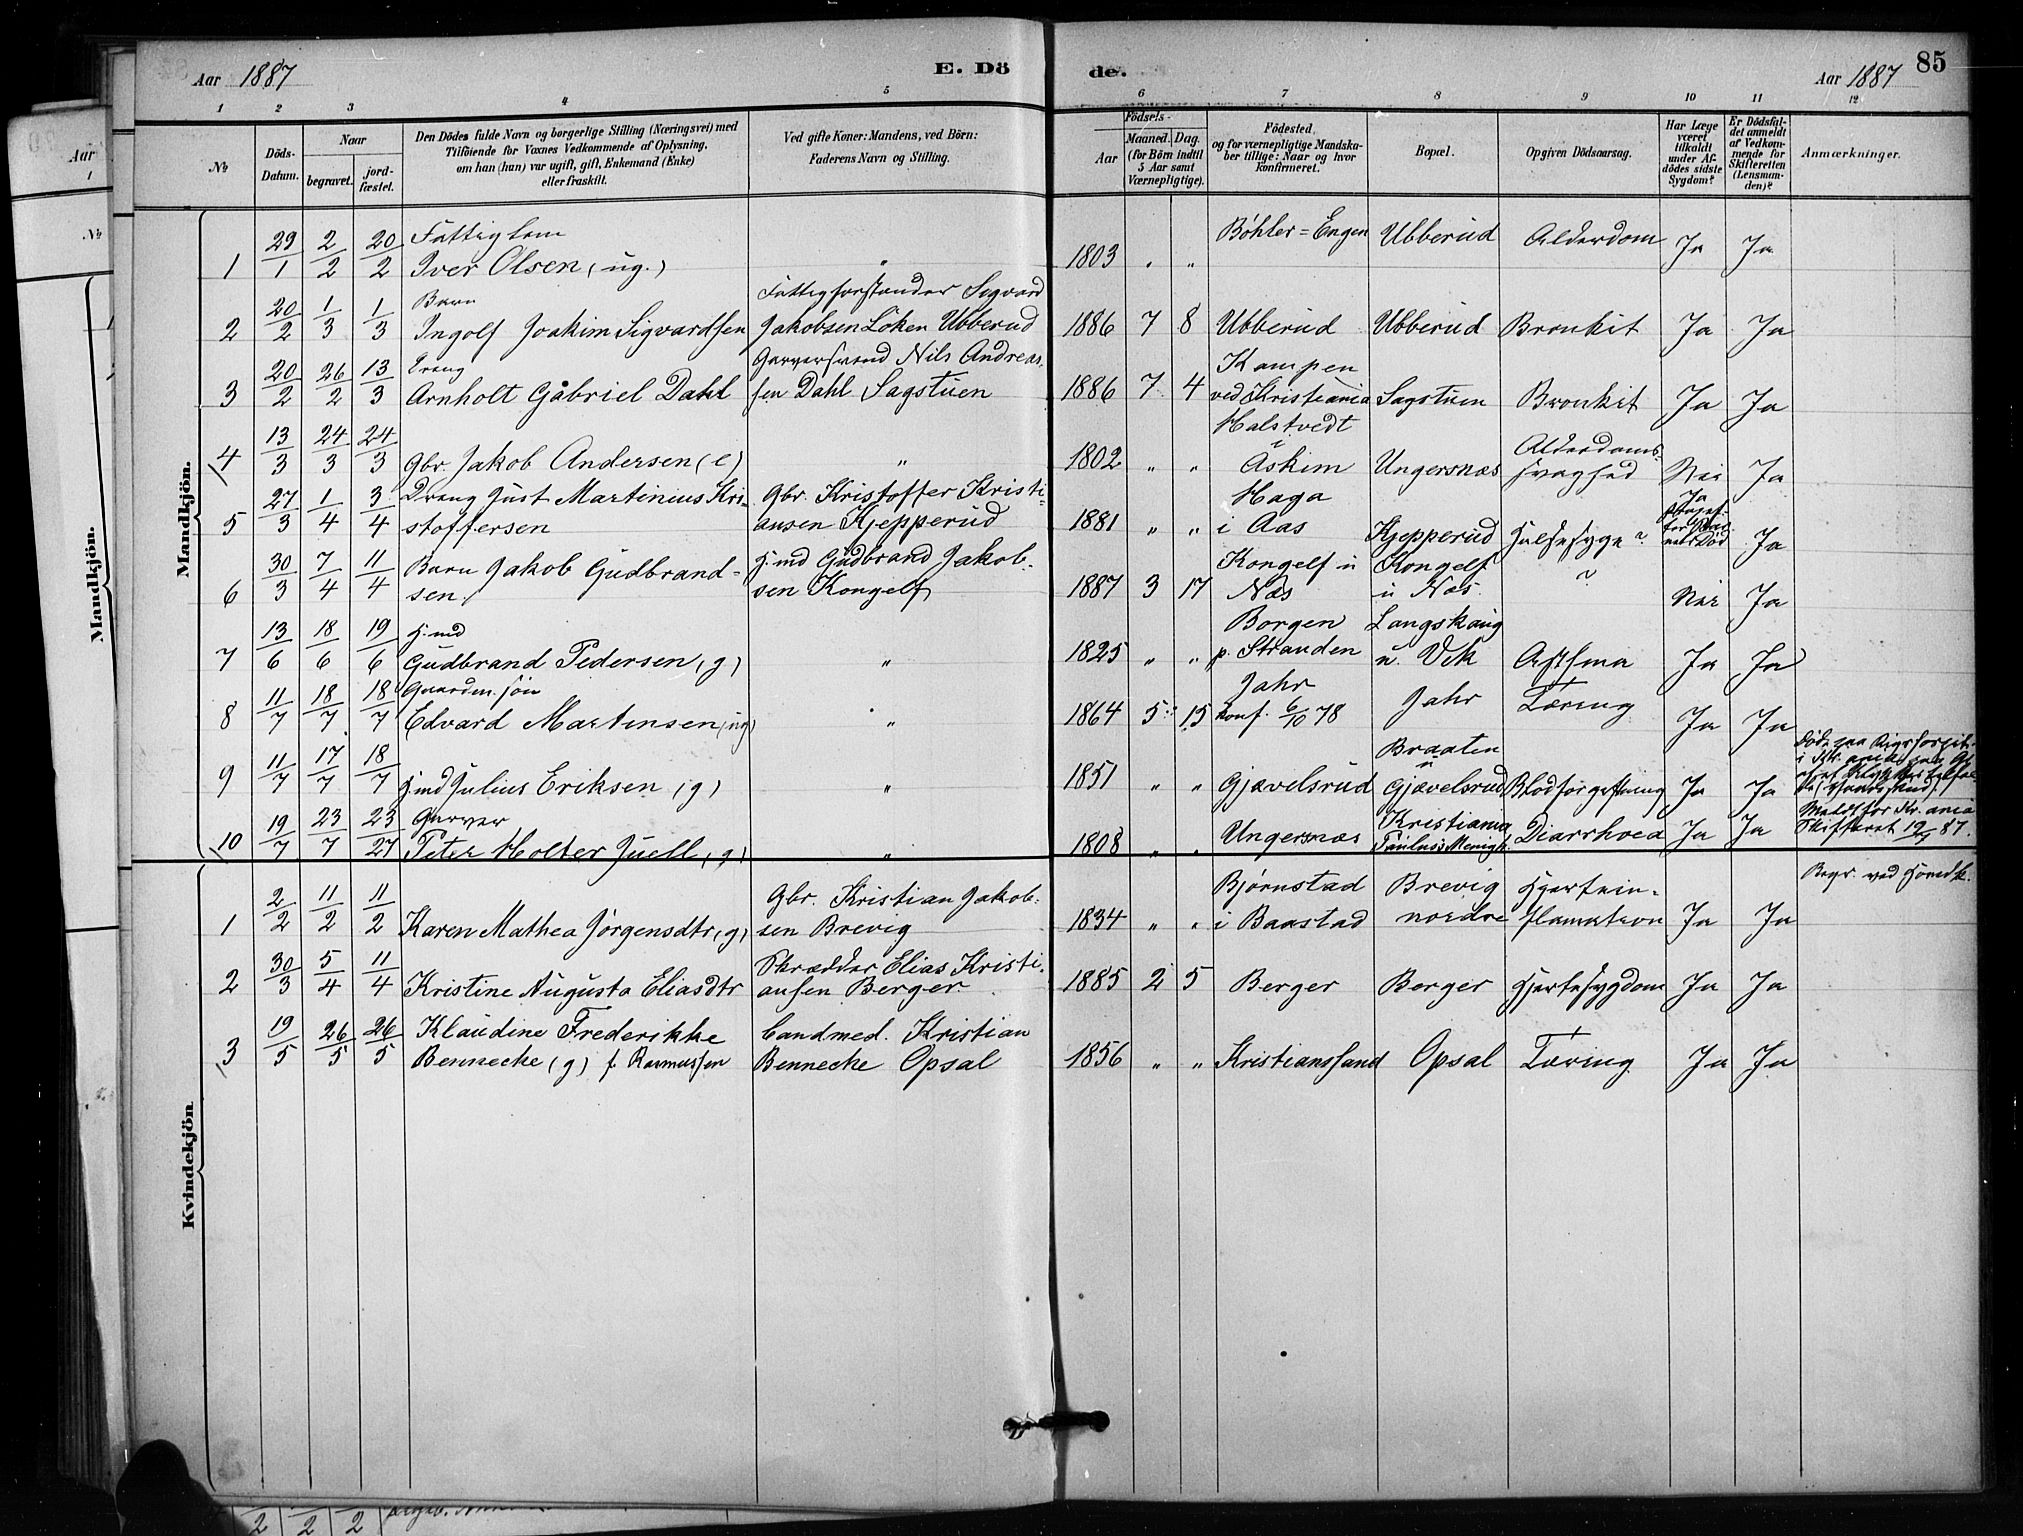 Aar 1887
E. Dö
de.
Aar 1887
85
1 2 3 4 5
6 7 8 9 10 11 12
No
Döds-Datum.
Naar
begravet.
jord-fæstet.
Den Dödes fulde Navn og borgerlige Stilling (Næringsvei) med
Tilföiende for Voxnes Vedkommende af Oplysning,
om han (hun) var ugift, gift, Enkemand (Enke)
eller fraskilt.
Ved gifte Koner: Mandens, ved Börn:
Faderens Navn og Stilling.
Födsels-
Aar
Maaned. Dag.
(for Börn indtil
5 Aar samt
Værnepligtige).
Födested,
og for værnepligtige Mandska-
ber tillige: Naar og hvor
konfirmeret.
Bopæl.
Opgiven Dödsaarsag.
Har Læge
været
tilkaldt
under Af-
dödes sidste
Sygdom?
Er Dödsfal-
det anmeldt
af Vedkom-
mende for
Skifteretten
(Lensman-
den)?
Anmærkninger.
Mandkjön.
1 29/1 2/2 20/2 Fattiglem
Iver Olsen (ug.) " 1803 " " Böhler=Engen Ubberud Alderdom Ja Ja
2 20/2 1/3 1/3 Barn
Ingolf Joakim Sigvardsen Fattigforstander Sigvard
Jakobsen Löken Ubberud 1886 7 8 Ubberud Ubberud Bronkit Ja Ja
3 20/2 26/2 13/3 Dreng
Arnholt Gabriel Dahl Garversvend Nils Andreas-
sen Dahl Sagstuen 1886 7 4 Kampen
ved Kristiania Sagstuen Bronkit Ja Ja
4 13/3 24/3 24/3 Gbr. Jakob Andersen (e) " 1802 " " Halstvedt
i
Askim Ungersnæs Alderdoms-
svaghed Nei Ja
5 27/3 1/4 3/4 Dreng Just Martinius Kri-
stoffersen Gbr. Kristoffer Kristi-
ansen Kjepperud 1881 " " Haga
i Aas Kjepperud Halsesyge? Ja Ja
6 30/3 7/4 11/4 Barn Jakob Gudbrand-
sen Hmd Gudbrand Jakob-
sen Kongelf 1887 3 17 Kongelf u
Næs Kongelf
u Næs ? Nei Ja
7 13/6 18/6 19/6 Hmd
Gudbrand Pedersen (g) " 1825 " " Borgen
p. Stranden Langskaug
u. Vik Asthma Ja Ja
8 11/7 18/7 18/7 Gaardm. sön
Edvard Martinsen (ug) " 1864 5 15 Jahr
konf. 6/10 78 Jahr Tæring Ja Ja
9 11/7 17/7 18/7 Hmd Julius Eriksen (g) " 1851 " " Gjævelsrud Braaten
u
Gjævelsrud Blodforgiftning Ja Ja Död paa Rigshospit.
10 19/7 23/7 23/27 Garver
Peter Holter Juell (g) " 1808 " " Ungersnæs Kristiania
Paulus's Menigh. Diarrhoea Ja Ja Meldt for Kr.ania
Skifteret 19/7 87.
Kvindekjön
1 2/2 11/2 11/2 Karen Mathea Jörgensdtr (g) Gbr. Kristian Jakob-
sen Brevig 1834 " " Bjørnstad
i Baastad Brevig
nordre Hjertein-
flamation Ja Ja Begr. ved
2 30/3 5/4 11/4 Kristine Augusta Eliasdtr Skrædder Elias Kristi-
ansen Berger 1885 2 5 Berger Berger Hjertesygdom Ja Ja
3 19/5 26/5 26/5 Klaudine Frederikke
Bennecke (g) f. Rasmussen Cand med. Kristian
Bennecke Opsal 1856 " " Kristianssand Opsal Tæring Ja Ja
Aar
1
No
Mandkjön.
2 2 2